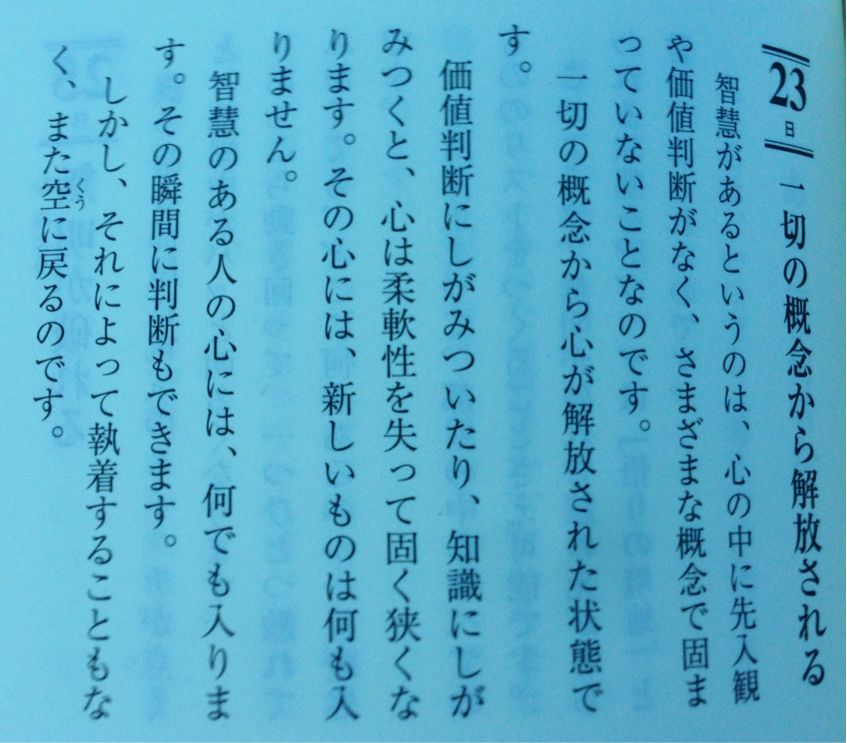 23日 一切の概念から解放される
智慧があるというのは、心の中に先入観
や価値判断がなく、さまざまな概念で固ま
っていないことなのです。
一切の概念から心が解放された状態で
す。
価値判断にしがみついたり、知識にしが
みつくと、心は柔軟性を失って固く狭くな
ります。その心には、新しいものは何も入
りません。
智慧のある人の心には、何でも入りま
す。その瞬間に判断もできます。
しかし、それによって執着することもな
く、また空くうに戻るのです。